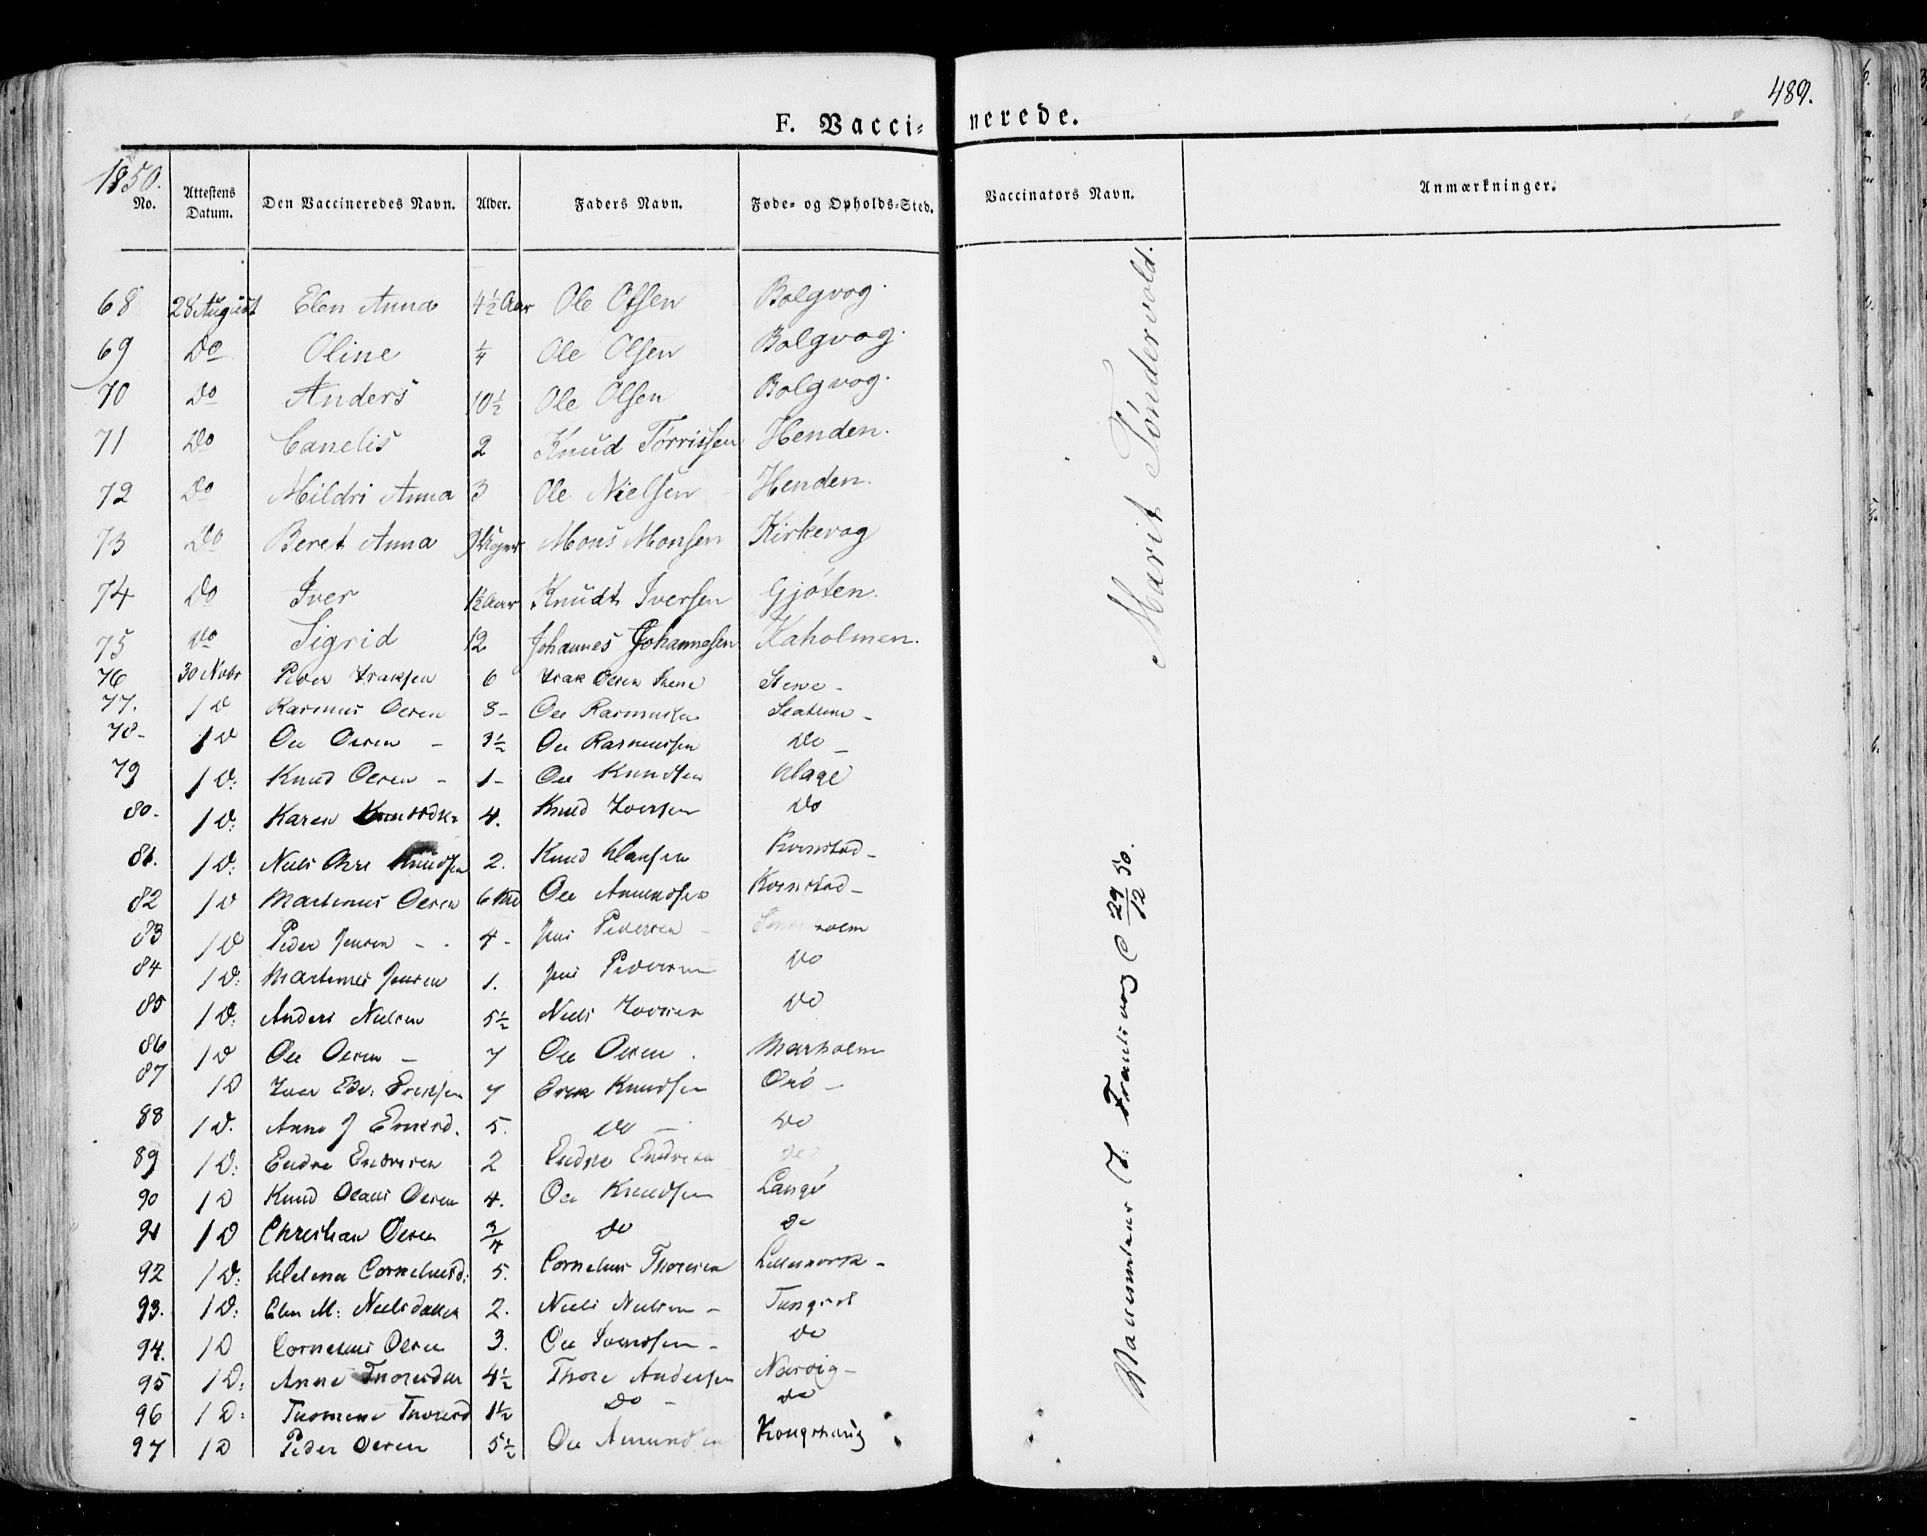 489.
F. Vaccinerede.
1850.
No. Attestens Datum. Den Vaccineredes Navn. Alder. Faders Navn. Føde- og Opholds-Sted. Vaccinators Navn. Anmærkninger.
68 28 August Elen Anna 4½ Aar Ole Olsen Bolgvog.
69 Do Oline ¼ Ole Olsen Bolgvog.
70 Do Anders 10½ Ole Olsen Bolgvog.
71 Do Canelis 2 Knud Torrissen Henden.
72 Do Mildri Anna 3 Ole Nielsen Henden.
73 Do Beret Anna Mons Monsen Kirkevog
74 Do Iver 1½ Aar Knudt Iversen Gjöten.
75 Do Sigrid 12 Johannes Johannesen Kaholmen.
76 30 Novbr Peder Isaksen 6 Isak Olsen Stene
77. 1 D Rasmus Olsen 3 - Ole Rasmussen
78 - 1 D Ole Olsen - 3½ Ole Rasmussen Do -
79 1 D: Knud Olsen - 1 - Ole Knudsen
80. 1 D: Karen 4. Knud Iversen Do
81. 1 D: Niels Knudsen 2. Knud Hansen Kornstad -
82 1 D Martinus Olsen 6 Ole Amundsen Kornstad -
83 1 D Peder Jensen - 4 - Jens Pedersen -
84 1 D: Martinus Jensen 1. Jens Pedersen Do
85 1 D: Anders Nielsen 5½ Niels Iversen Do
86 1 D Ole Olsen - 7 Ole Olsen. Marholm
87 1 D Iver Edv: Eriksen 7 Erik Knudsen Orö -
88 1 D. Anne J 5. Do - Do
89 1 D: Endre Endresen 2 Endre Endresen do
90 1 D Knud Olaus Olsen 4. Ole Knudsen Langö
91 1 D Christian Olsen ¾ do do
92 1 D: Helena Corneliusd: 5. Cornelius Thoresen
93. 1 D: Elen M: Nielsdatter 2. Niels Nielsen -
94. 1 D Cornelius Olsen 3. Ole Svendsen - Do
95 1 D: Anne Thoresdatter 4½ Thore Andersen Narvig -
96 1 D: Thoresd 1½ Do - do
97 1 D Peder Olsen 5½ Ole Amundsen Kongshaug
Marit Töndervold.
29/12 50.